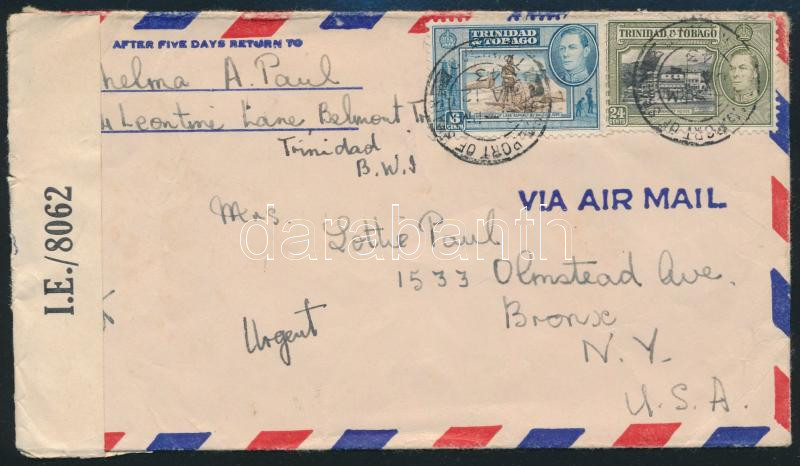 AFTER FIVE DAYS RETURN TO
Thelma A. Paul
Leontine Lane Belmont
Trinidad
B.W.I
TRINIDAD & TOBAGO
6 CENTS
TRINIDAD & TOBAGO
24 CENTS
PORT OF
PORT OF
VIA AIR MAIL
Mrs. Lottie Paul
1533 Olmstead Ave.
Bronx
N.Y.
U.S.A.
Urgent
I.E./8062
darabanth